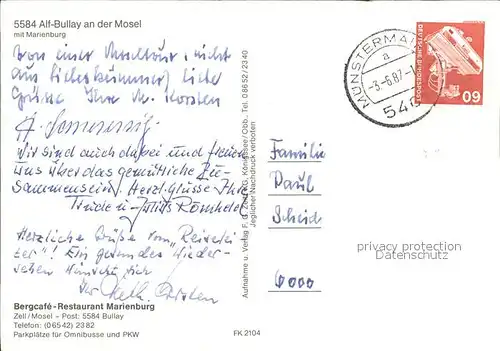 5584 Alf-Bullay an der Mosel
mit Marienburg
Von einer Moseltour (nicht
aus Liebeskummer) liebe
Grüsse Ihre M. Korsten
Wir sind auch dabei und freuen
uns über das gemütliche Zu-
sammensein. Herzl. Grüsse Ihre
Trude u.
Herzliche Grüße vom "Reiselei
ter"! Ein gesundes Wieder-
sehen wünscht sich
Ihr
Bergcafé-Restaurant Marienburg
Zell/Mosel - Post: 5584 Bullay
Telefon: (06542) 2382
Parkplätze für Omnibusse und PKW
FK 2104
Aufnahme u. Verlag F. G. KG. /Obb., Tel. 08652/2340
Jeglicher Nachdruck verboten
MÜNSTERMAI
a
-3.-6.87-
540
DEUTSCHE BUNDESPOST
60
Familie
Paul
Scheid
6000
privacy protection
Datenschutz